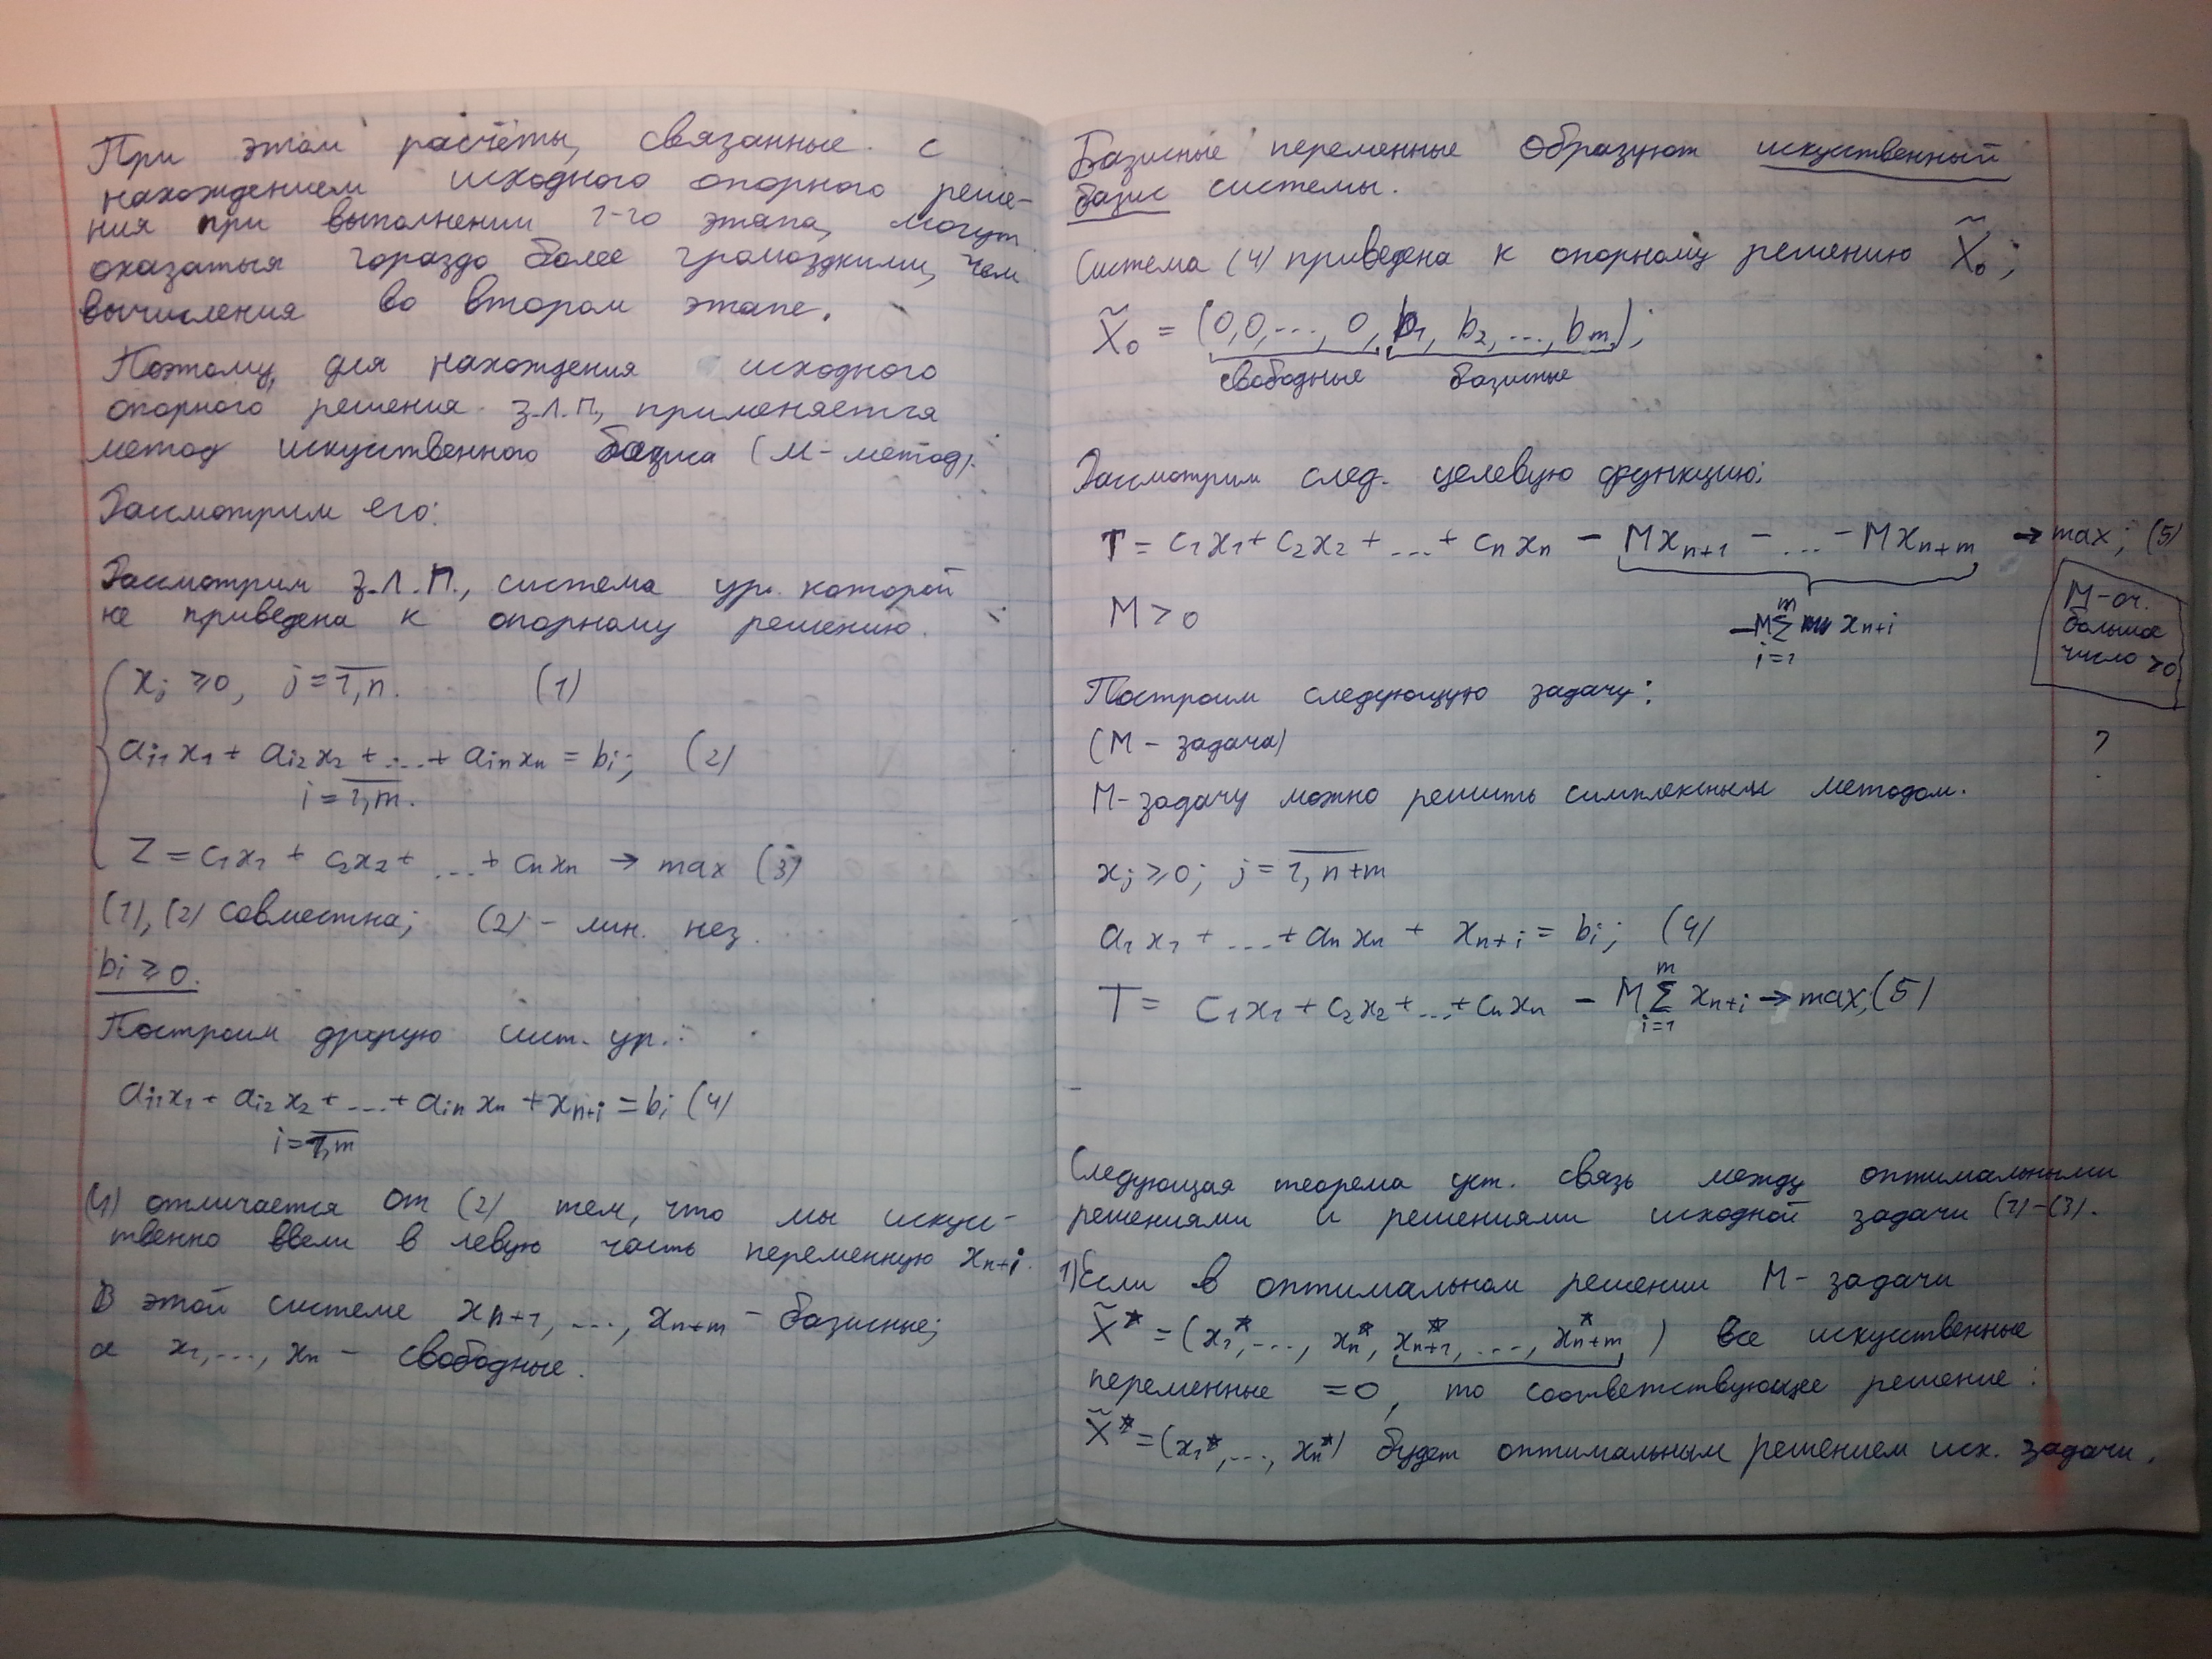 При этом расчёты, связанные с
нахождением исходного опорного реше-
ния при выполнении 1-го этапа, могут
оказаться гораздо более громоздкими, чем
вычисления во втором этапе.
Поэтому, для нахождения исходного
опорного решения з.л.п., применяется
метод искуственного базиса (М-метод).
Рассмотрим его:
Рассмотрим з.л.п., система ур. которой
не приведена к опорному решению.
xj ≥ 0, j = 1,n. (1)
ai1x1 + ai2x2 + ... + ainxn = bi; (2)
i = 1,m.
Z = c1x1 + c2x2 + ... + cnxn → max (3)
(1), (2) совместна; (2) - лин. нез.
bi ≥ 0.
Построим другую сист. ур.:
ai1x1 + ai2x2 + ... + ainxn + xn+i = bi (4)
i = 1,m
(4) отличается от (2) тем, что мы искус-
твенно ввели в левую часть переменную xn+i.
В этой системе xn+1, ..., xn+m - базисные;
а x1, ..., xn - свободные.
Базисные переменные образуют искуственный
базис системы.
Система (4) приведена к опорному решению X̃0;
X̃0 = (0,0,..., 0, b1, b2, ..., bm);
свободные базисные
Рассмотрим след. целевую функцию:
T = c1x1 + c2x2 + ... + cnxn - Mxn+1 - ... - Mxn+m → max; (5)
M > 0
-M m∑i=1 xn+i
М-оч.
большое
число >0
Построим следующую задачу:
(М - задача)
?
М-задачу можно решить симплексным методом.
xj ≥ 0; j = 1, n+m
a1x1 + ... + anxn + xn+i = bi; (4)
T = c1x1 + c2x2 + ... + cnxn - M m∑i=1 xn+i → max; (5)
Следующая теорема уст. связь между оптимальными
решениями и решениями исходной задачи (1)-(3).
1) Если в оптимальном решении М- задачи
X̃* = (x1*, ..., xn*, xn+1*, ..., xn+m*) все искуственные
переменные =0, то соответствующее решение:
X̃* = (x1*, ..., xn*) будет оптимальным решением исх. задачи.